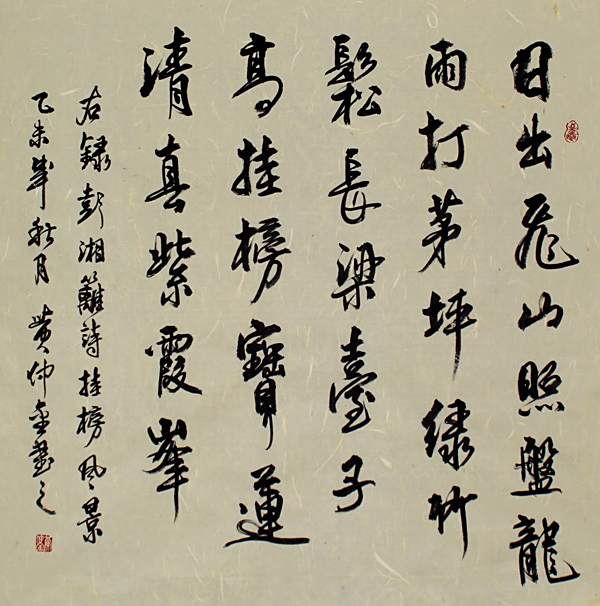 日出飛山照盤龍
雨打茅坪綠竹
鬆長梁臺子
高挂榜寶蓮
清真紫霞峯
右錄彭湘籬詩挂榜风景
乙未年秋月黄仲金書之